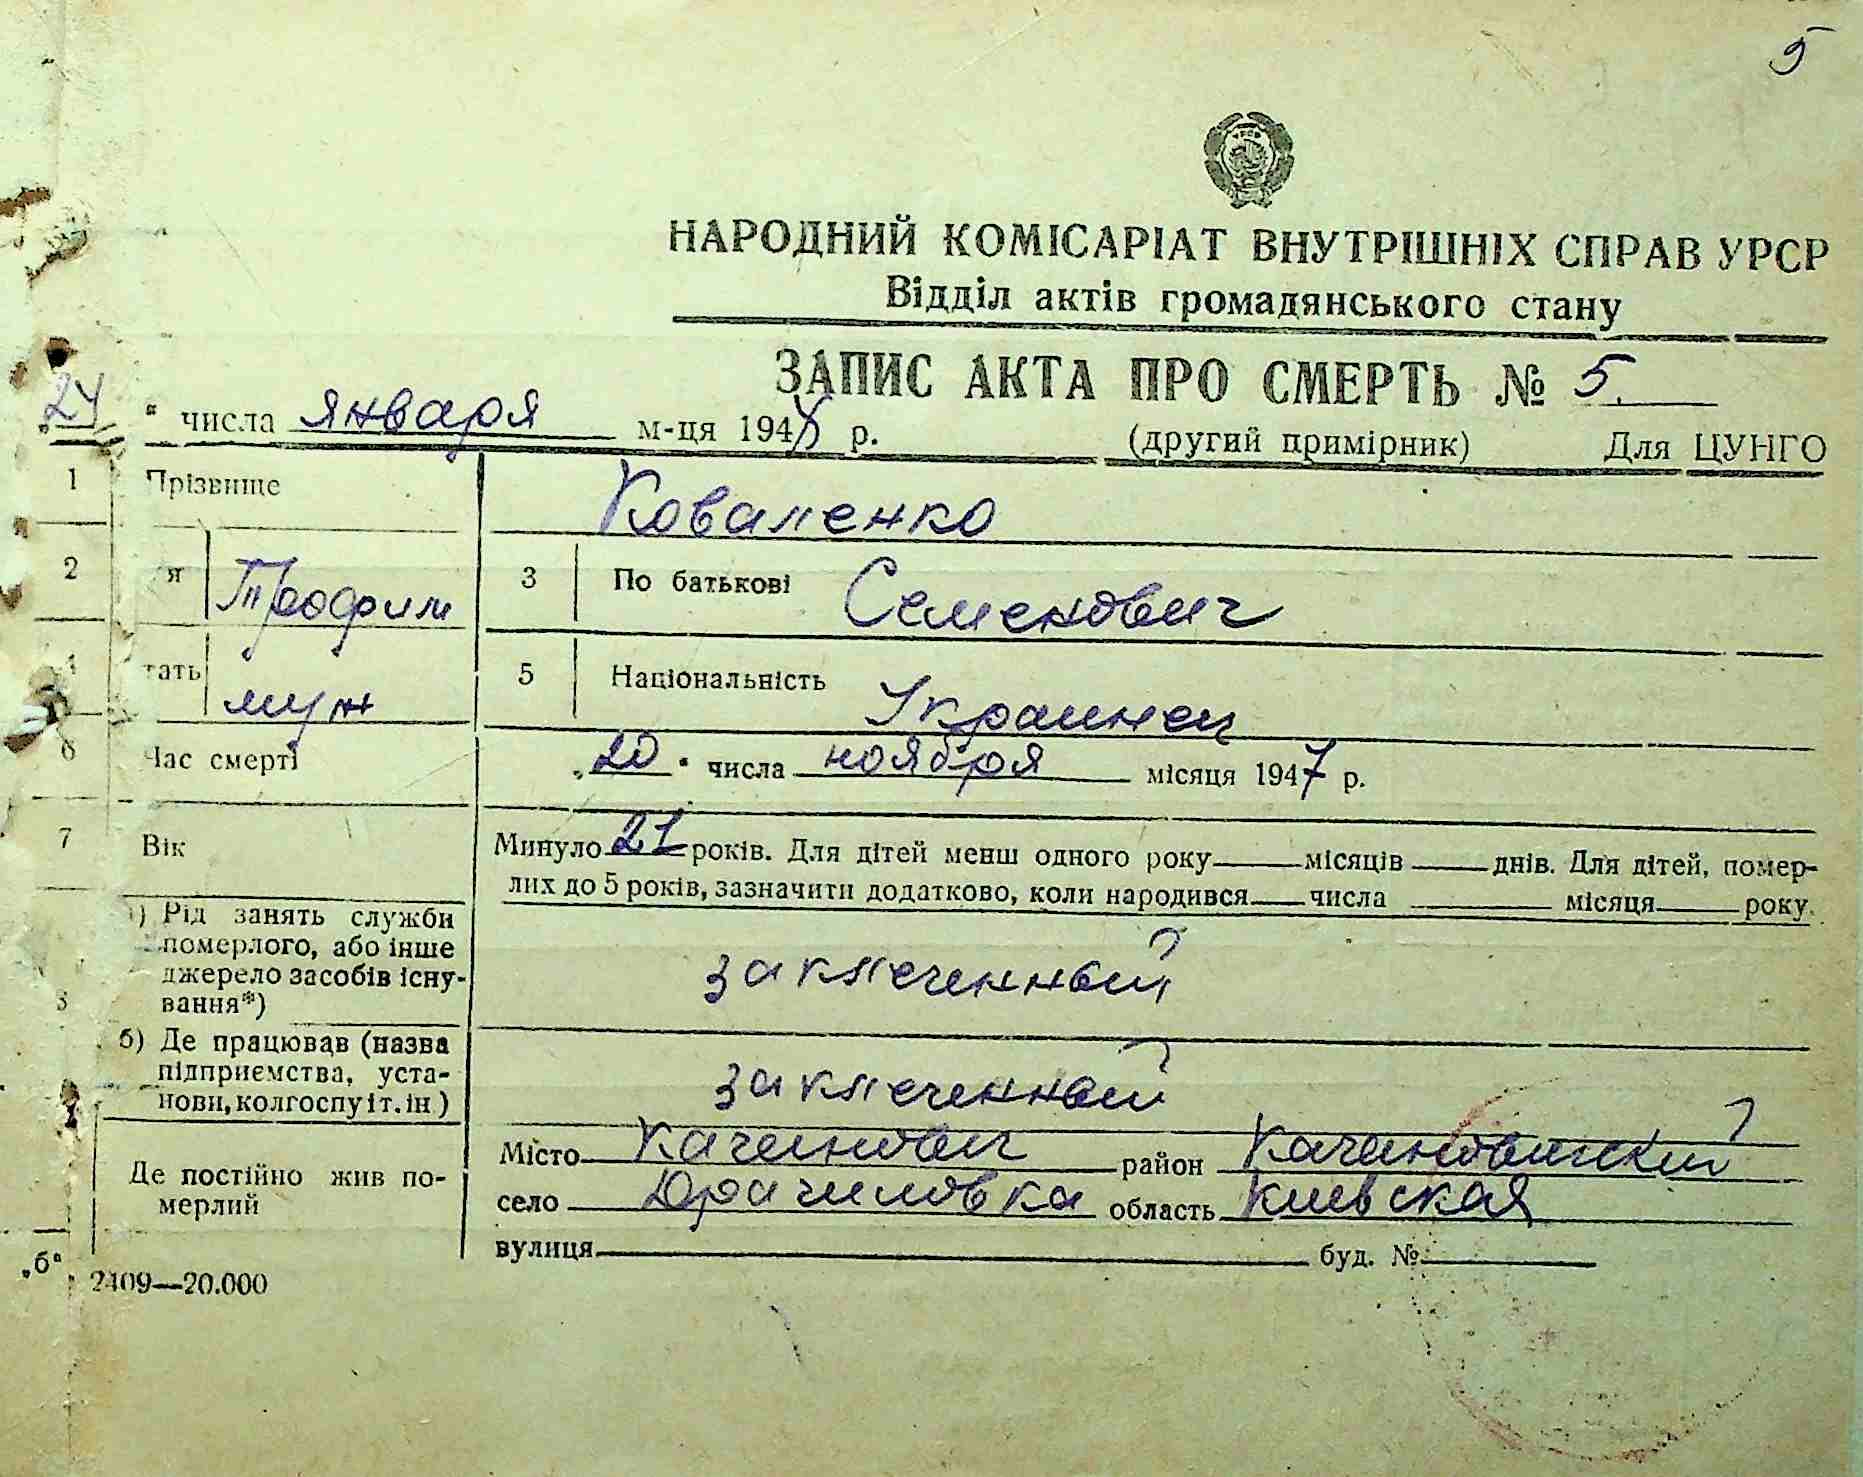 5
УРСР
НАРОДНИЙ КОМІСАРІАТ ВНУТРІШНІХ СПРАВ УРСР
Відділ актів громадянського стану
ЗАПИС АКТА ПРО СМЕРТЬ № 5.
24 " числа января м-ця 194 р. (другий примірник) Для ЦУНГО
1 Прізвище Коваленко
2 я Трофим 3 По батькові Семенович
4 тать муж 5 Національність Украинец
6 Час смерті „20" числа ноября місяця 1947 р.
7 Вік Минуло 21 років. Для дітей менш одного року місяців днів. Для дітей, помер-
лих до 5 років, зазначити додатково, коли народився числа місяця року.
) Рід занять служби
померлого, або інше
джерело засобів існу-
вання*)
заключенный
б) Де працював (назва
підприємства, уста-
нови, колгоспу і т. ін)
заключенный
Де постійно жив по-
мерлий
Місто район
село область Киевская
вулиця буд. №
„б"
2409—20.000